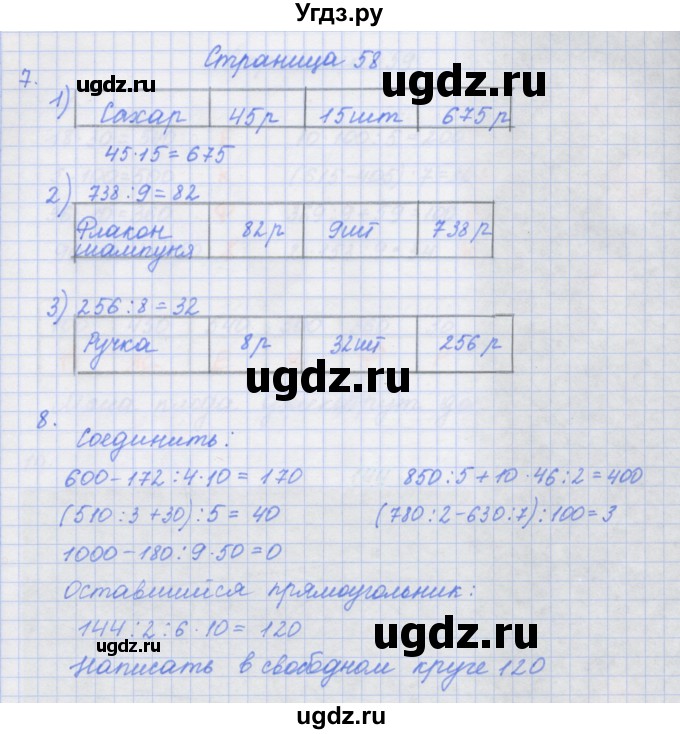 Угдз.ру
Страница 58
ugdz.ru ugdz.ru
7.
1) Сахар 45р 15шт 675р
45·15=675
2) 738:9=82
Флакон шампуня 82р 9шт 738р
ugdz.ru
3) 256:8=32
Ручка 8р 32шт 256р
ugdz.ru
8.
Соединить:
600-172:4·10=170 850:5+10·46:2=400
(510:3+30):5=40 (780:2-630:7):100=3
1000-180:9·50=0
Оставшийся прямоугольник:
144:2:6·10=120
ugdz.ru ugdz.ru
Написать в свободном круге 120
ugdz.ru